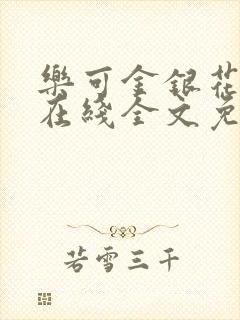 樂可金銀花
在綫全文免
若雪三千